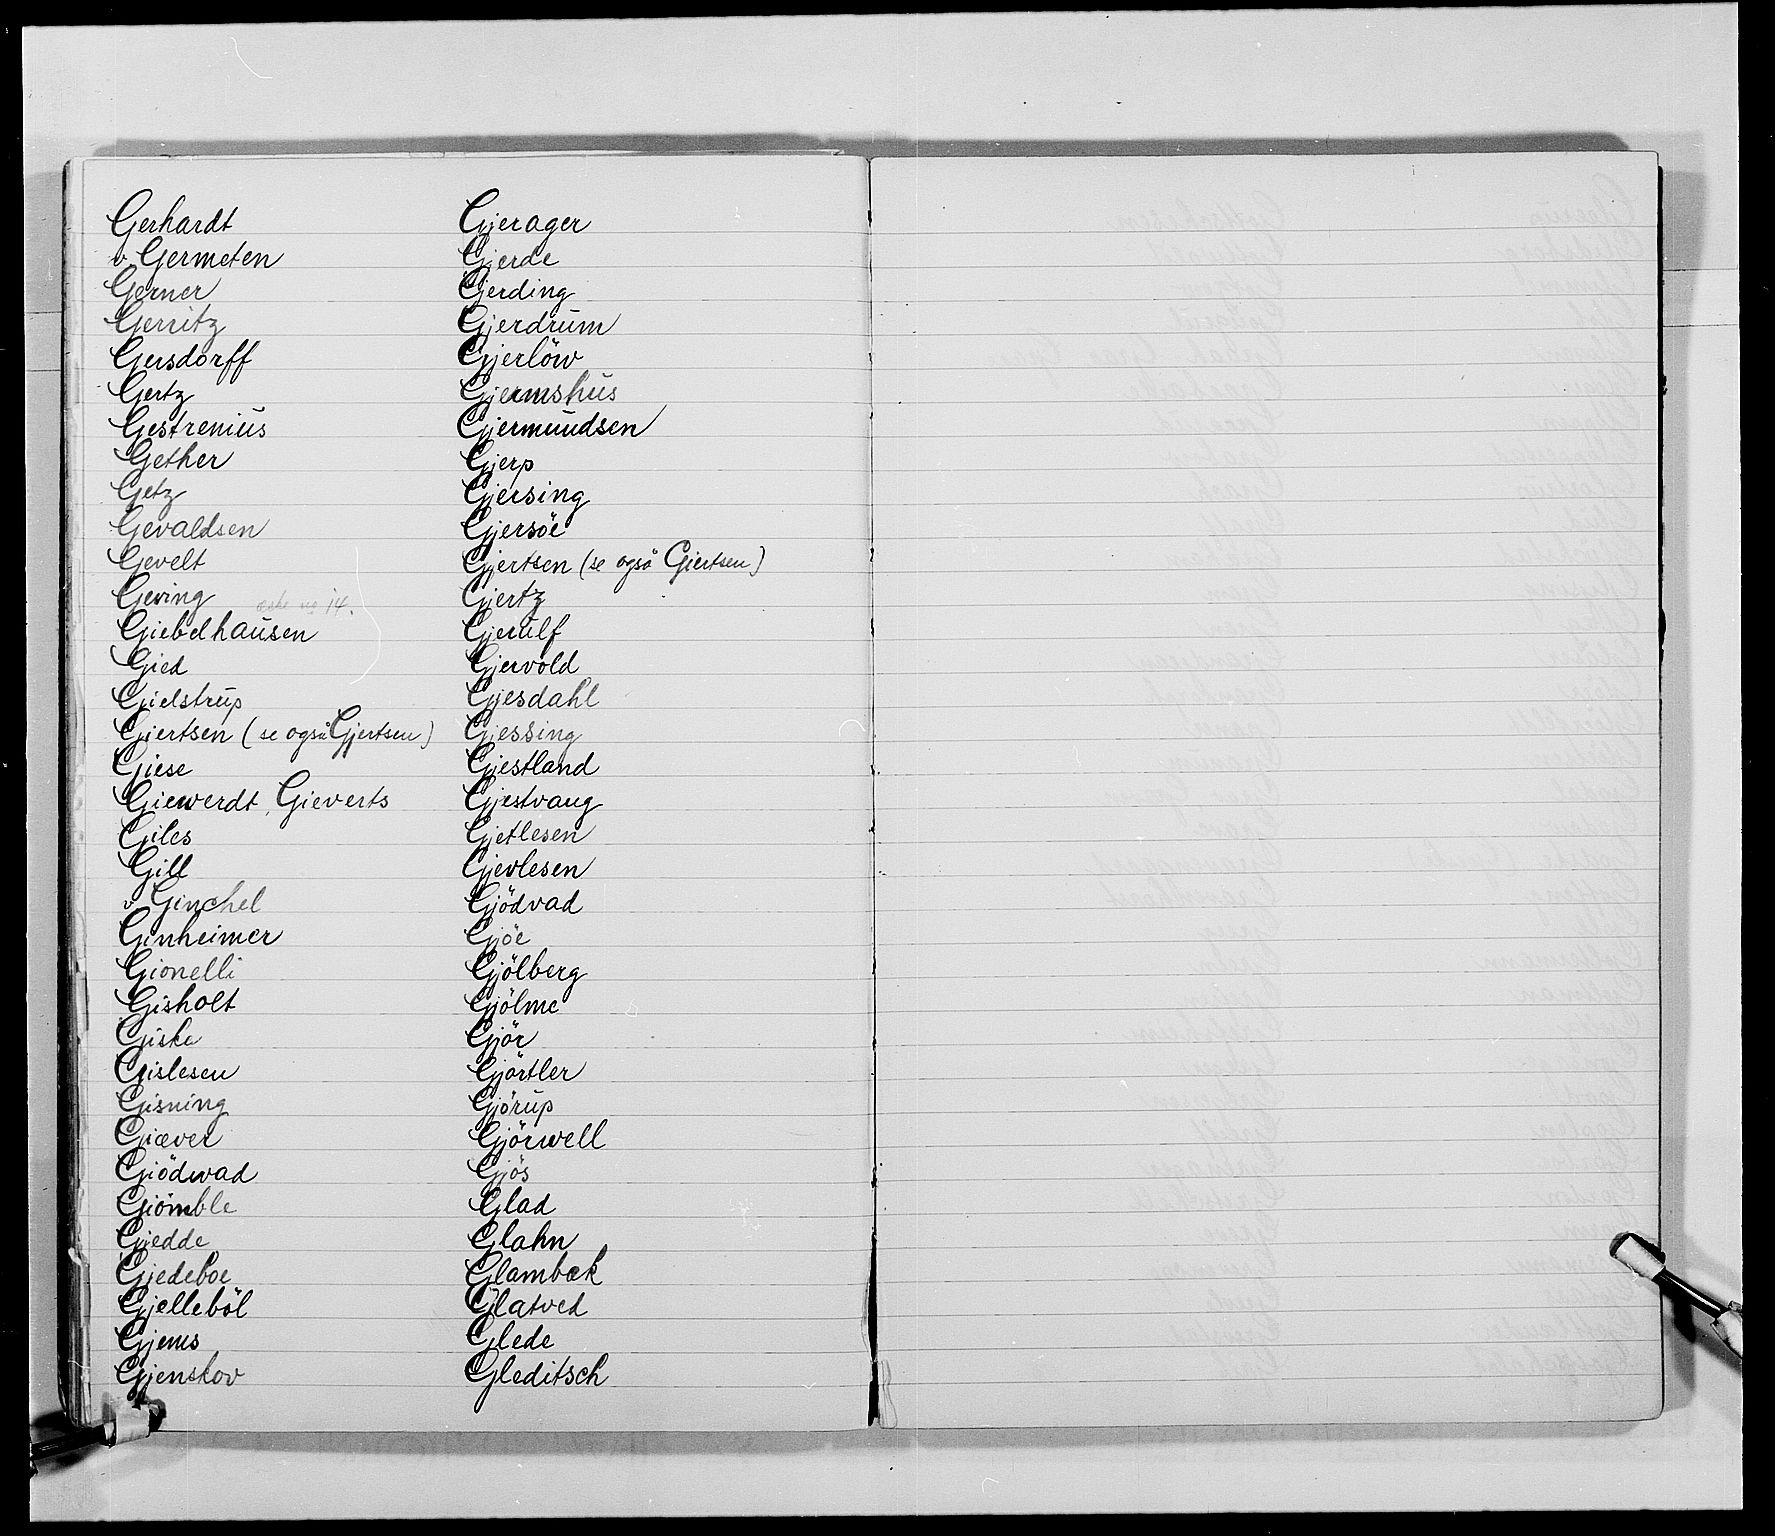 Gerhardt
v. Germeten
Gerner
Gerritz
Gersdorff
Gertz
Gestrenius
Gether
Getz
Gevaldsen
Gevelt
Geving
æske no 14.
Giebelhausen
Gied
Gielstrup
Giertsen (se også Gjertsen)
Giese
Giewerdt, Gieverts
Giles
Gill
v. Ginchel
Ginheimer
Gionelli
Gisholt
Giske
Gislesen
Gisning
Giæver
Giödwad
Giömble
Gjedde
Gjedeboe
Gjelleböl
Gjems
Gjenskov
Gjerager
Gjerde
Gjerding
Gjerdrum
Gjerlöw
Gjermshus
Gjermundsen
Gjerp
Gjersing
Gjersöe
Gjertsen (se også Giertsen)
Gjertz
Gjerulf
Gjervold
Gjesdahl
Gjessing
Gjestland
Gjestvang
Gjetlesen
Gjevlesen
Gjödvad
Gjöe
Gjölberg
Gjölme
Gjör
Gjörtler
Gjörup
Gjörwell
Gjös
Glad
Glahn
Glambæk
Glatved
Glede
Gleditsch